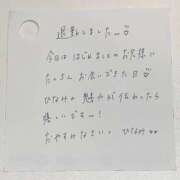 退勤しました〜♡
今日ははじめましてのお兄様に
たくさんお会いできた日♡
ひなみの魅力が伝わったら
嬉しいです〜!
おやすみなさい♪ ひなみ